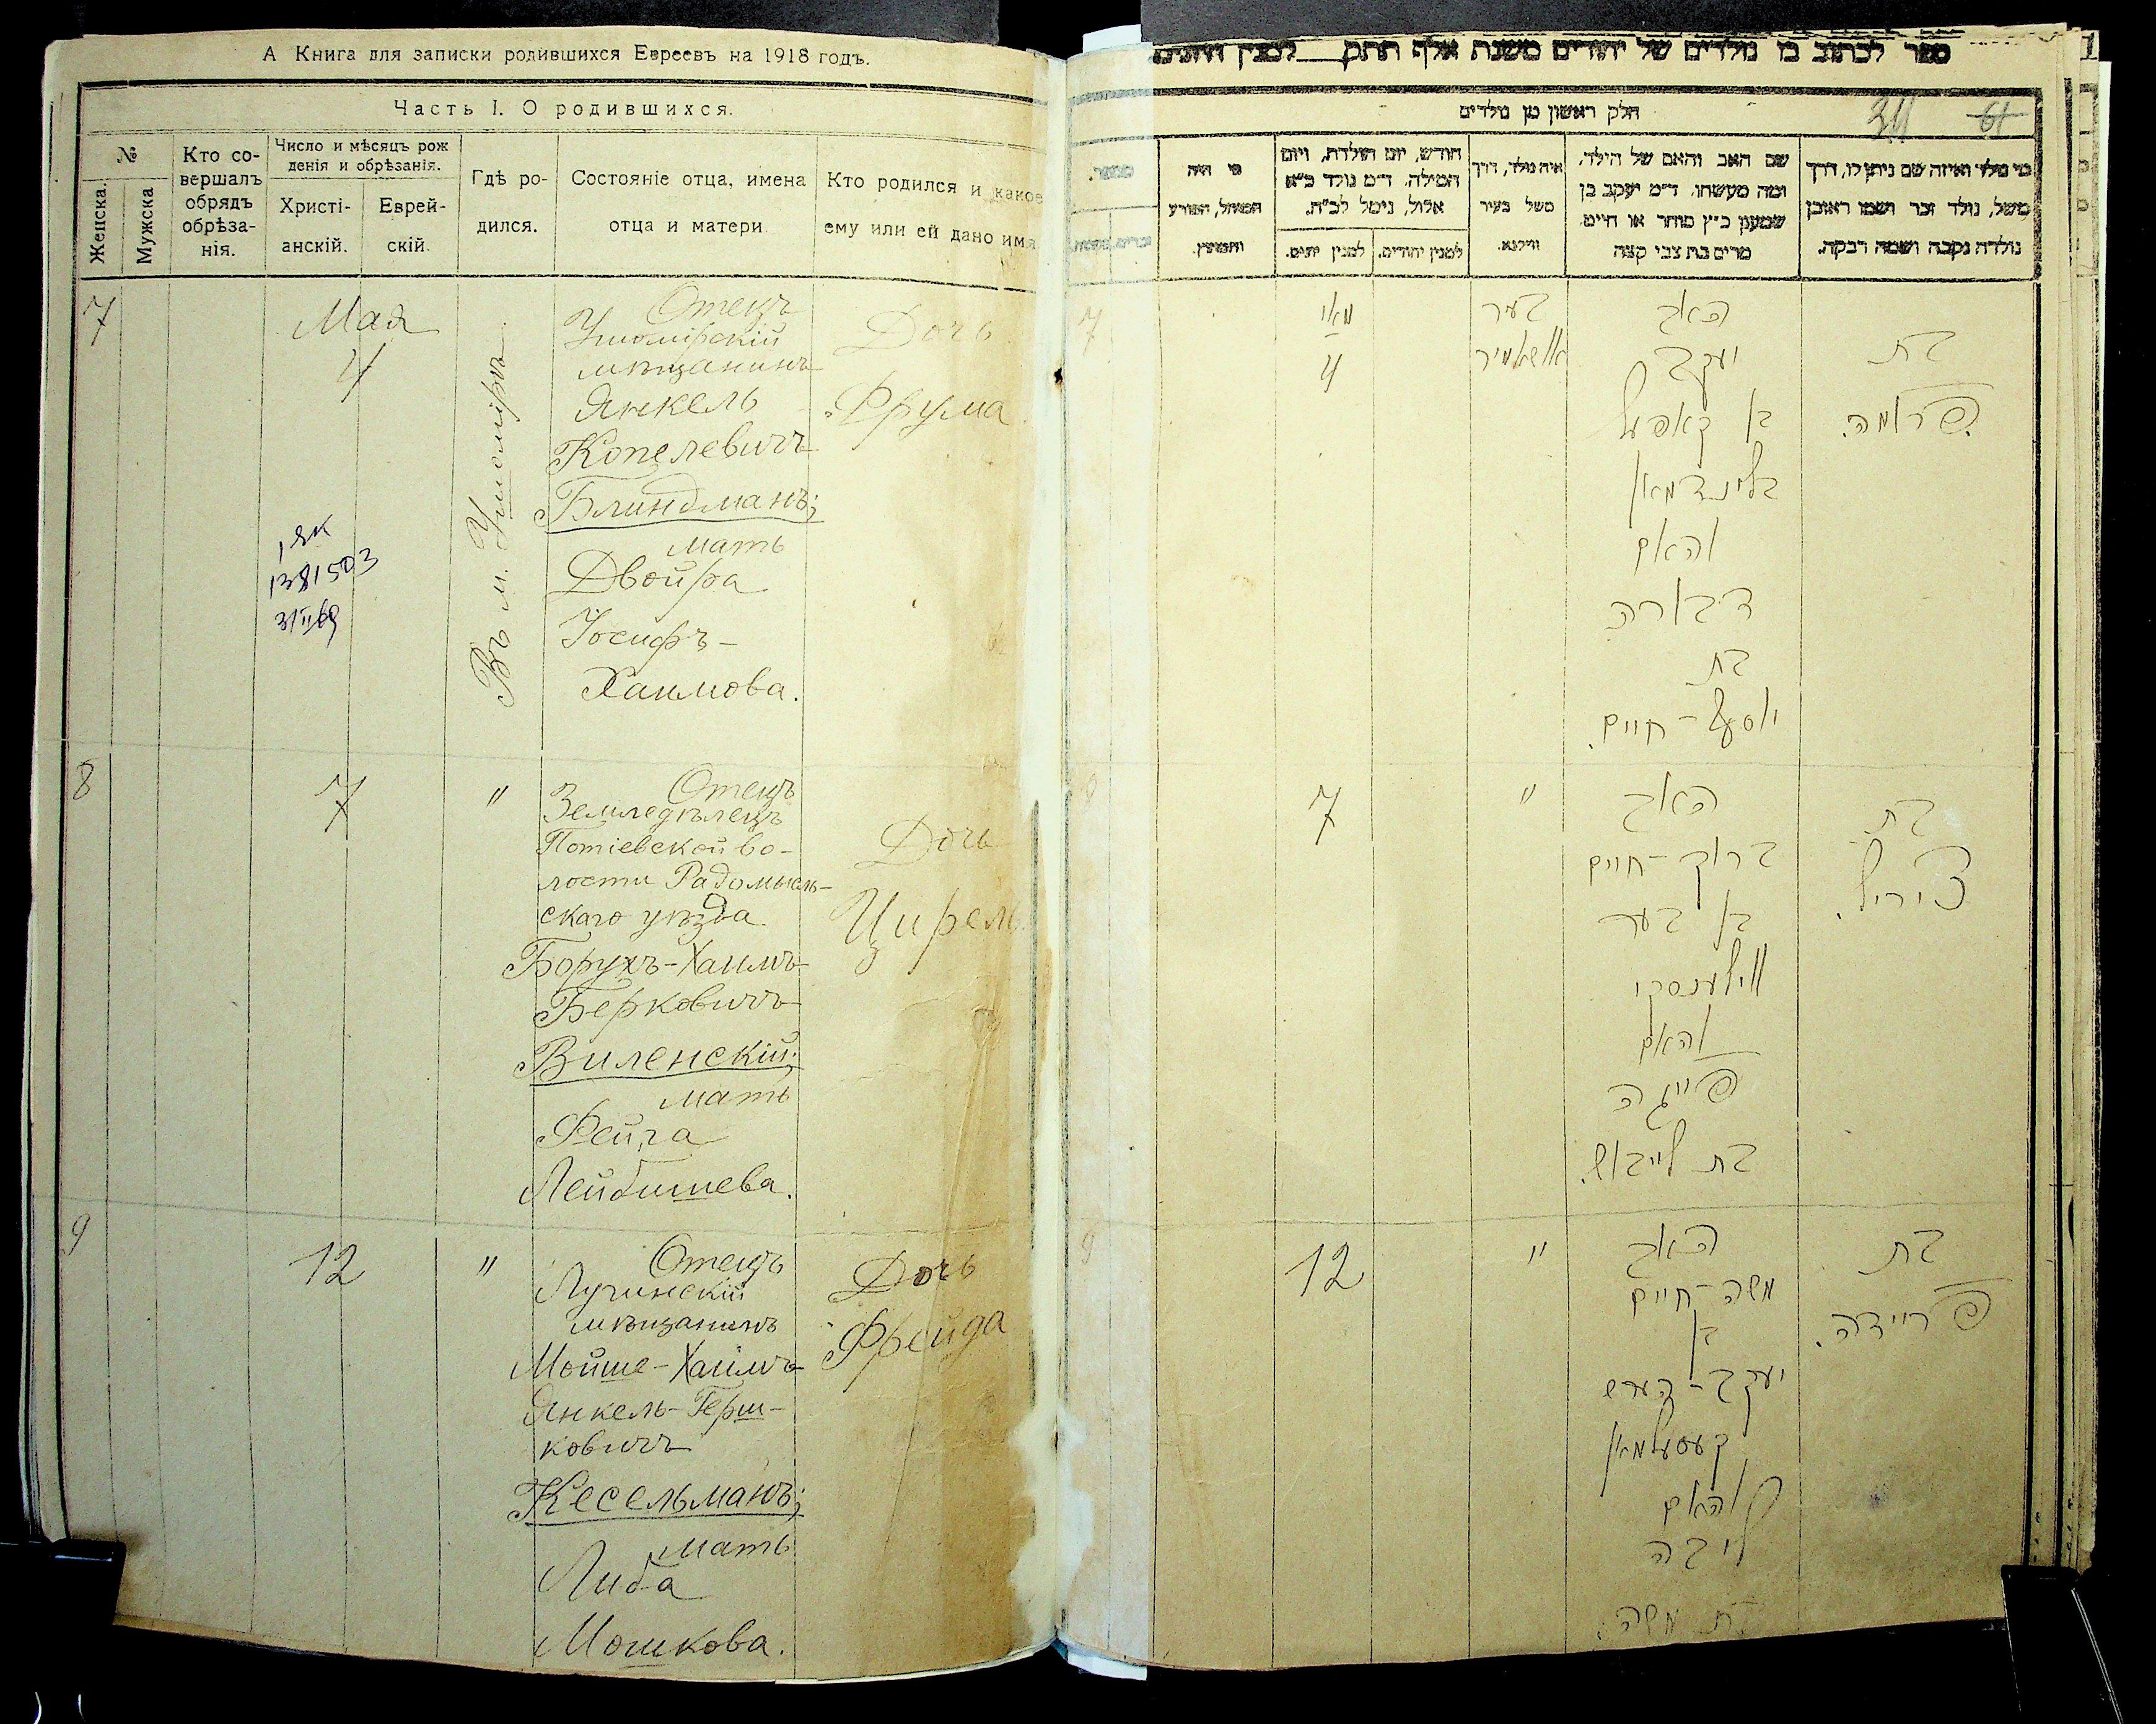 А Книга для записки родившихся Евреевъ на 1918 годъ.
Часть I. О родившихся.
№
Женска.
Мужска
Кто со-
вершалъ
обрядъ
обрѣза-
нія.
Число и мѣсяцъ рож
денія и обрѣзанія.
Христі-
анскій.
Еврей-
скій.
Гдѣ ро-
дился.
Состояніе отца, имена
отца и матери
Кто родился и какое
ему или ей дано имя
7
Мая
4
Въ м. Ушомірѣ
Отецъ
Ушомірскій
мѣщанинъ
Янкель
Копелевичъ
Блиндманъ;
мать
Двойра
Іосифъ-
Хаимова.
Дочь
„Фрума
1381503
8
7
"
Отецъ
Земледѣлецъ
Потіевской во-
лости Радомысль-
скаго уѣзда
Борухъ-Хаимъ
Берковичъ
Виленскій;
мать
Фейга
Лейбишева.
Дочь
Цирель
9
12
"
Отецъ
Лугинскій
мѣщанинъ
Мойше-Хаимъ
Янкель-Герш-
ковичъ
Кесельманъ;
мать
Либа
Мошкова.
Дочь
Фрейда
ספר לכתוב בו נולדים של יהודים משנת אלף תתק לסנין היונים
חלק ראשון מן נולדים
34
61
מי נולד ואיזה שם ניתן לו, דרך
משל, נולד זכר ושמו ראובן
נולדה נקבה ושמה רבקה.
שם האב והאם של הילד,
ומה מעשהו. ד״מ יעקב בן
שמעון כ״ץ סוחר או חיים
מרים בת צבי קצה
איה נולד, דרך
משל בעיר
ווילנא.
חודש, יום הולדת, ויום
המילה. ד״מ נולד כ״א
אלול, נימל לכ״ח.
למנין יהודים.
למנין יונים.
מי היה
המוהל, הפורע
והמוצץ.
מספר.
7
מאי
4
בער
אושאמיר
האב
יעקב
בן קאפעל
בלינדמאן
והאם
דבורה
בת
יוסף-חיים.
בת
פרומה.
7
"
האב
ברוך-חיים
בן בער
ווילענסקי
והאם
פייגה
בת לייבוש.
בת
ציריל.
9
12
"
האב
משה-חיים
בן
יעקב-הערש
קעסעלמאן
והאם
ליבה
בת משה.
בת
פריידה.